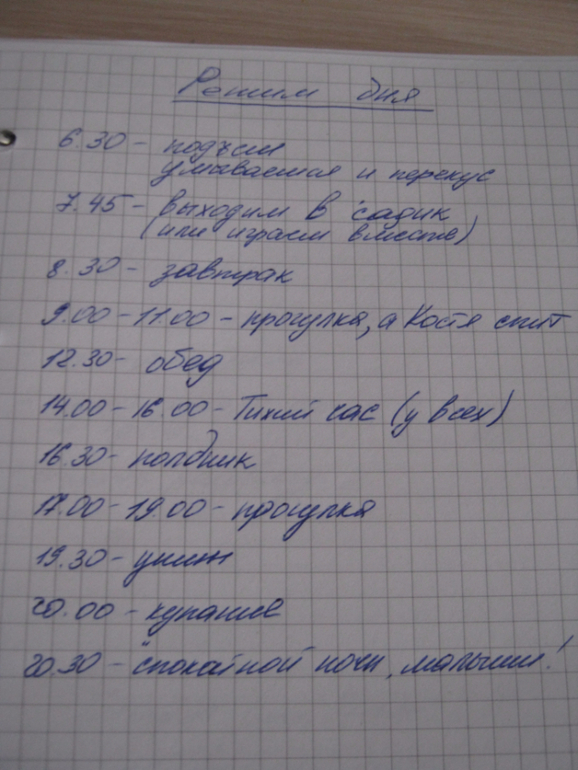 Режим дня
6.30 - подъем
умываемся и перекус
7.45 - выходим в садик
(или играем вместе)
8.30 - завтрак
9.00 - 11.00 - прогулка, а Костя спит
12.30 - обед
14.00 - 16.00 - Тихий час (у всех)
16.30 - полдник
17.00 - 19.00 - прогулка
19.30 - ужин
20.00 - купание
20.30 - "спокойной ночи, малыши!